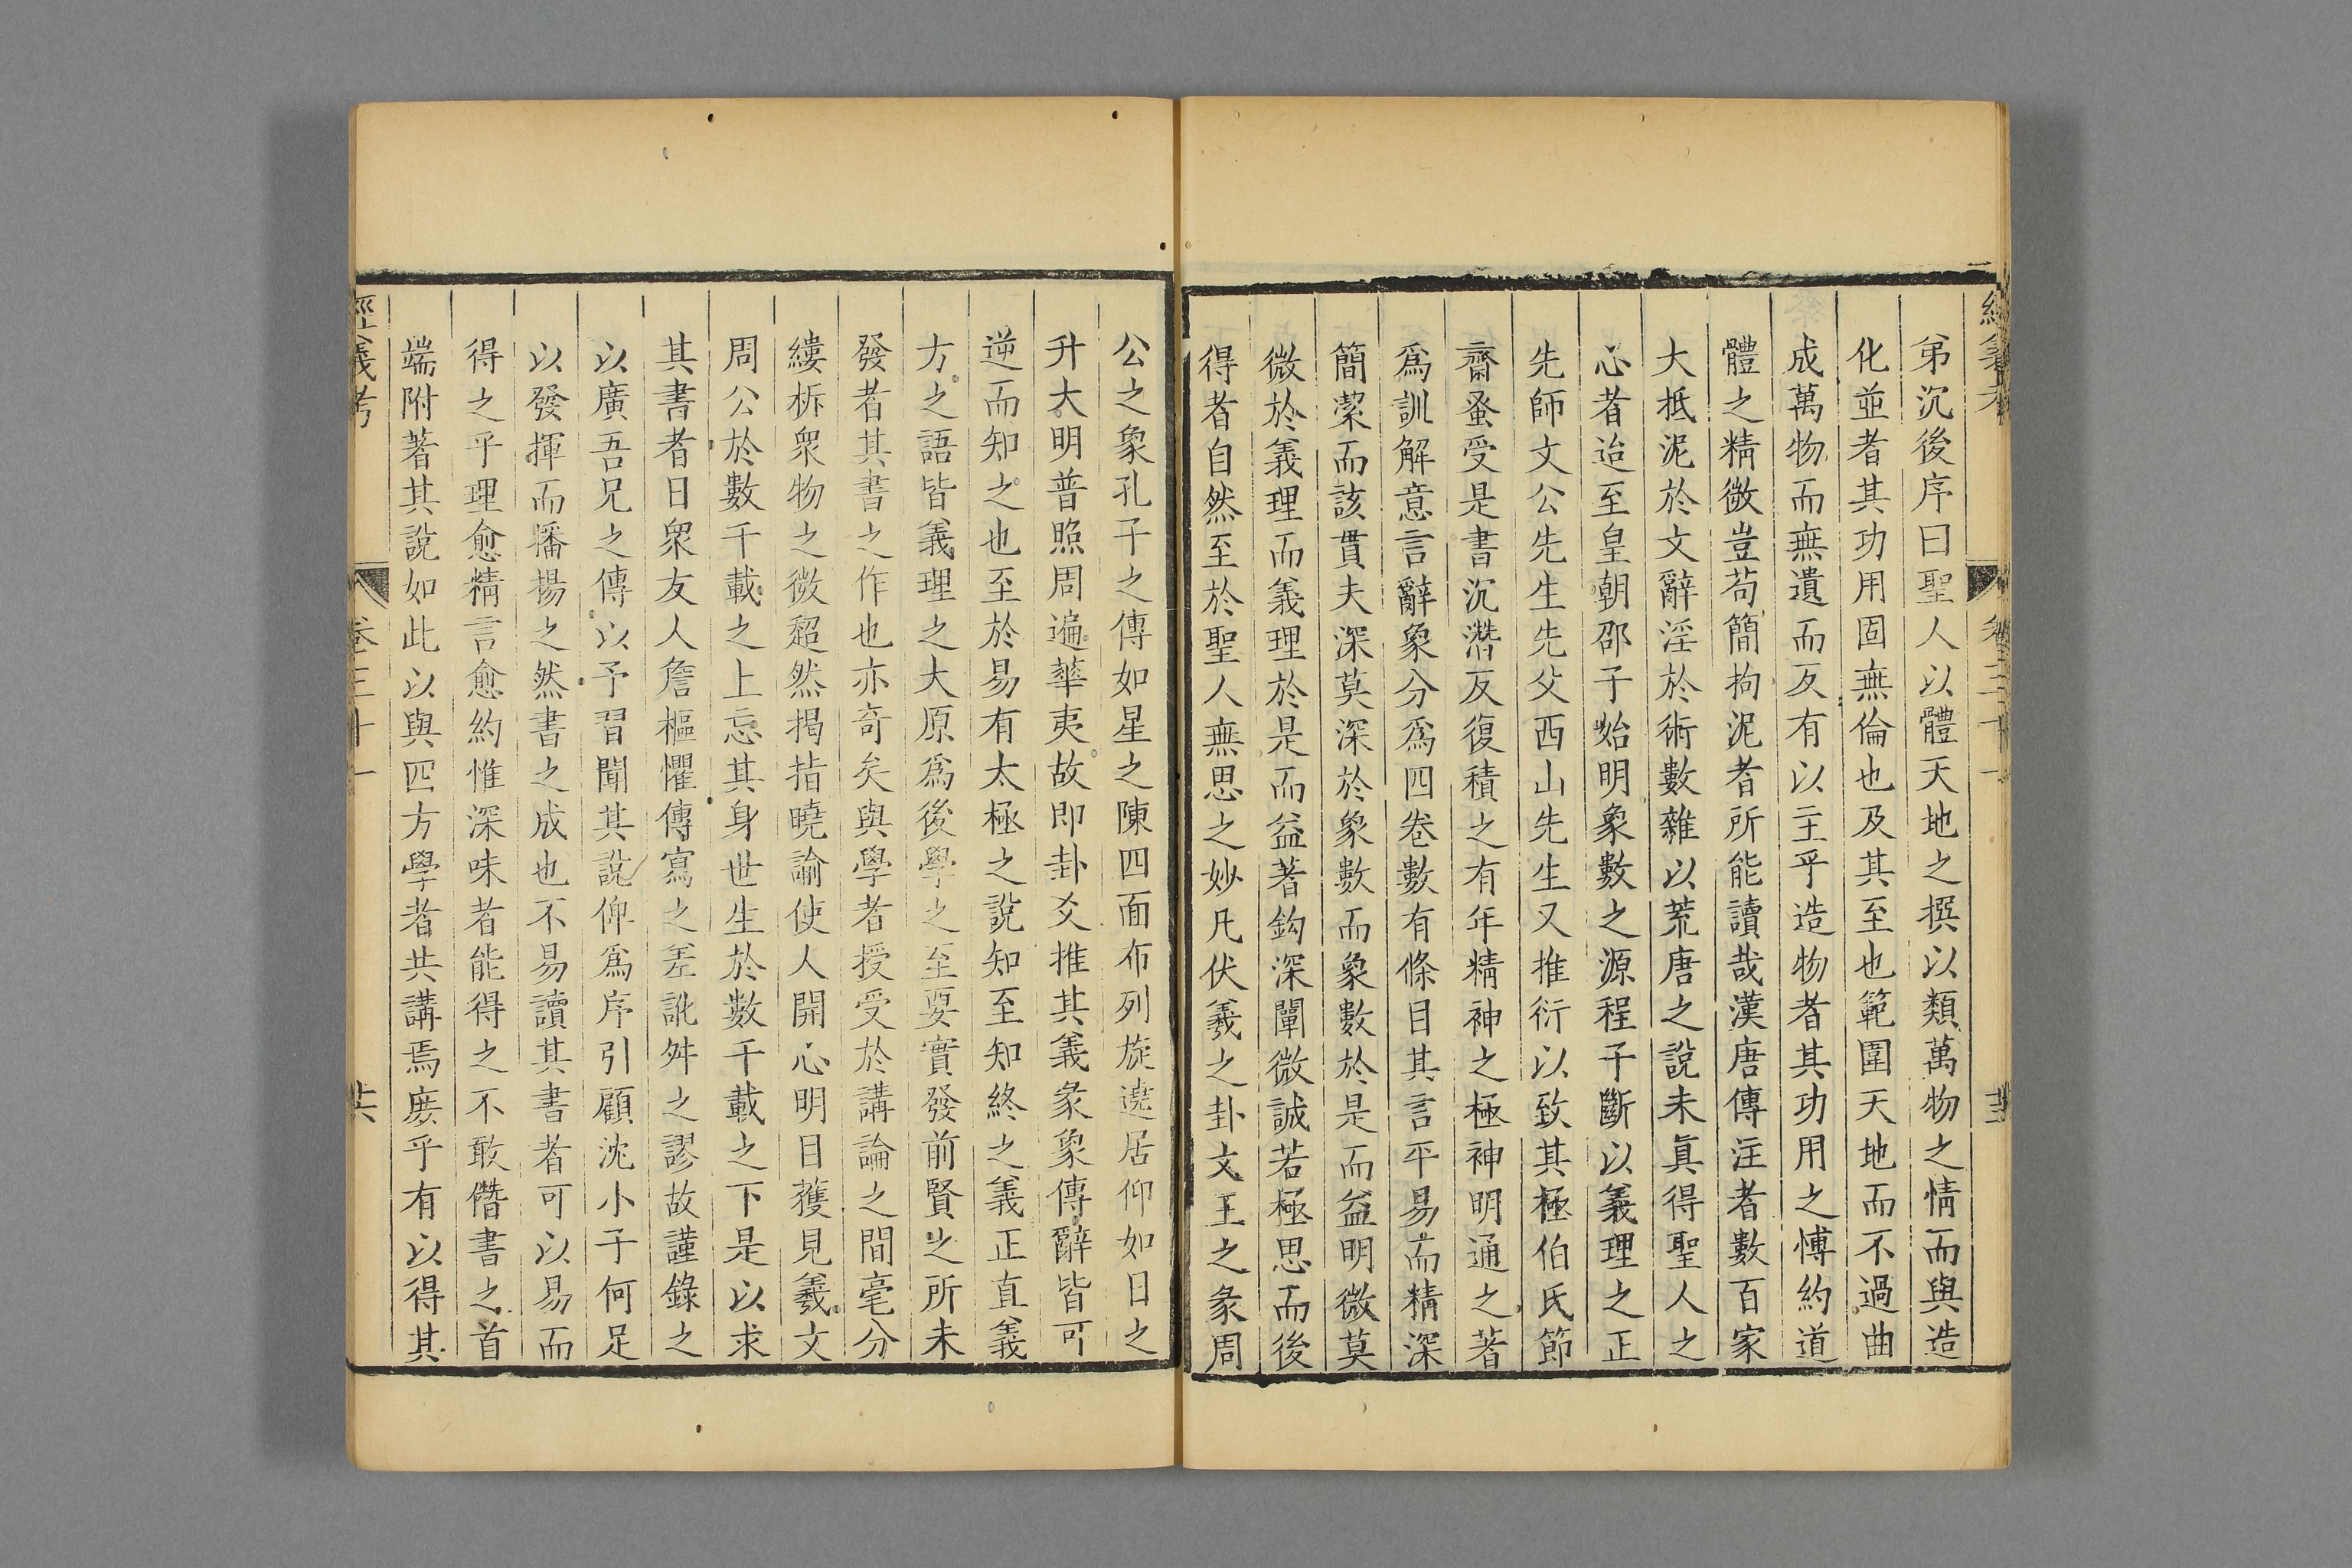 經義考
卷三十一
弟沉後序曰聖人以體天地之撰以類萬物之情而與造
化並者其功用固無倫也及其至也範圍天地而不過曲
成萬物而無遺而反有以主乎造物者其功用之博約道
體之精微豈苟簡拘泥者所能讀哉漢唐傳注者數百家
大抵泥於文辭淫於術數雜以荒唐之說未眞得聖人之
心者迨至皇朝邵子始明象數之源程子斷以義理之正
先師文公先生先父西山先生又推衍以致其極伯氏節
齋蚤受是書沉潛反復積之有年精神之極神明通之著
爲訓解意言辭象分爲四卷數有條目其言平易而精深
簡潔而該貫夫深莫深於象數而象數於是而益明微莫
微於義理而義理於是而益著鈎深闡微誠若極思而後
得者自然至於聖人無思之妙凡伏羲之卦文王之彖周
公之象孔子之傳如星之陳四面布列旋遶居仰如日之
升大明普照周遍華夷故即卦爻推其義彖象傳辭皆可
逆而知之也至於易有太極之說知至知終之義正直義
方之語皆義理之大原爲後學之至要實發前賢之所未
發者其書之作也亦奇矣與學者授受於講論之間毫分
縷析衆物之微超然揭指曉諭使人開心明目獲見羲文
周公於數千載之上忘其身世生於數千載之下是以求
其書者日衆友人詹樞懼傳寫之差訛舛之謬故謹錄之
以廣吾兄之傳以予習聞其說俾爲序引顧沈小子何足
以發揮而播揚之然書之成也不易讀其書者可以易而
得之乎理愈精言愈約惟深味者能得之不敢僭書之首
端附著其說如此以與四方學者共講焉庶乎有以得其
經義考
卷三十一
廿六